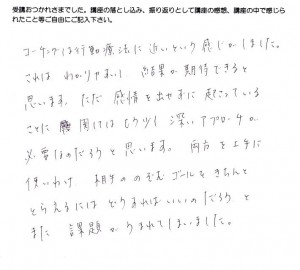 受講おつかれさまでした。講座の落とし込み、振り返りとして講座の感想、講座の中で感じら
れたこと等ご自由にご記入下さい。
コーチングは行動療法に近いという感じがしました。
これは わかりやすいし 結果が期待できると
思います。ただ 感情を出せずに 起こっている
ことに 関しては もう1つ 深い アプローチが
必要なのだろうと 思います。 両方を 上手に
使いわけ 相手ののぞむ ゴールを きちんと
とらえるには どうすればいいのだろう と
また 課題が うまれてしまいました。